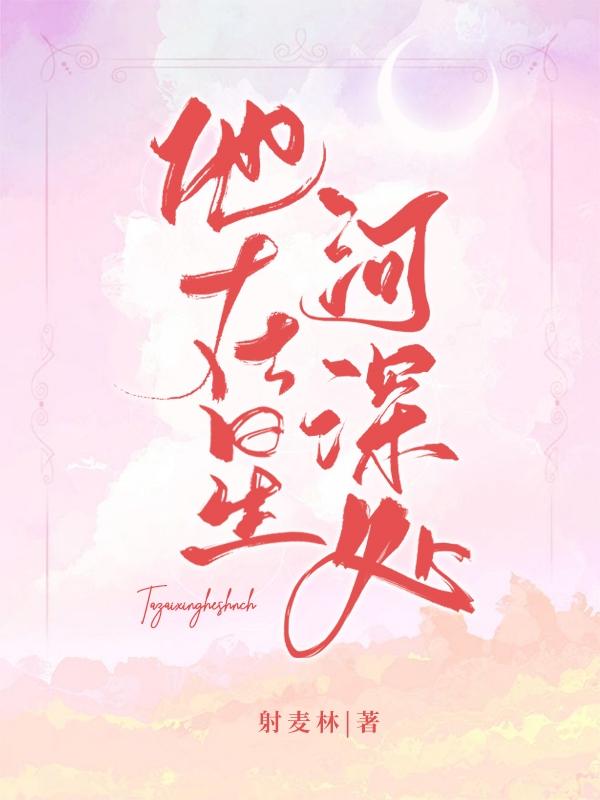 他在星
河深处
Tazaixingheshnch
射麦林|著